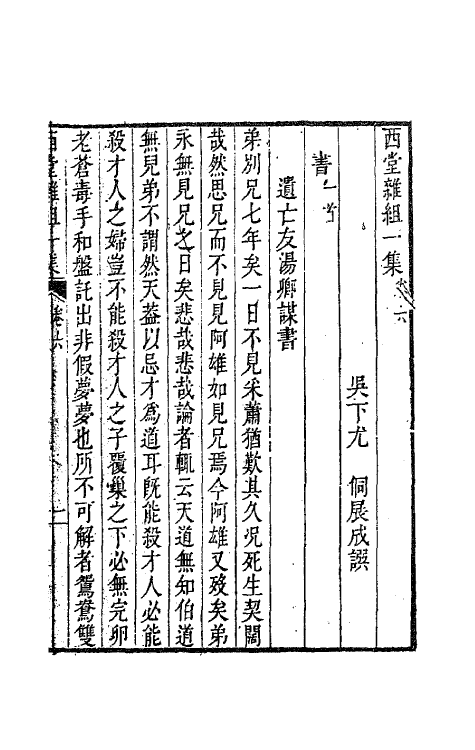 西堂雜組一集
卷六
吳下尤 侗展成譔
書
遺亡友湯卿謀書
弟別兄七年矣一日不見采蕭猶歎其久况死生契闊
哉然思兄而不見見阿雄如見兄焉今阿雄又歿矣弟
永無見兄之日矣悲哉悲哉論者輒云天道無知伯道
無兒弟不謂然天葢以忌才爲道耳旣能殺才人必能
殺才人之婦豈不能殺才人之子覆巢之下必無完卵
老蒼毒手和盤託出非假夢夢也所不可解者鴛鴦雙
西堂雜組一集
卷六